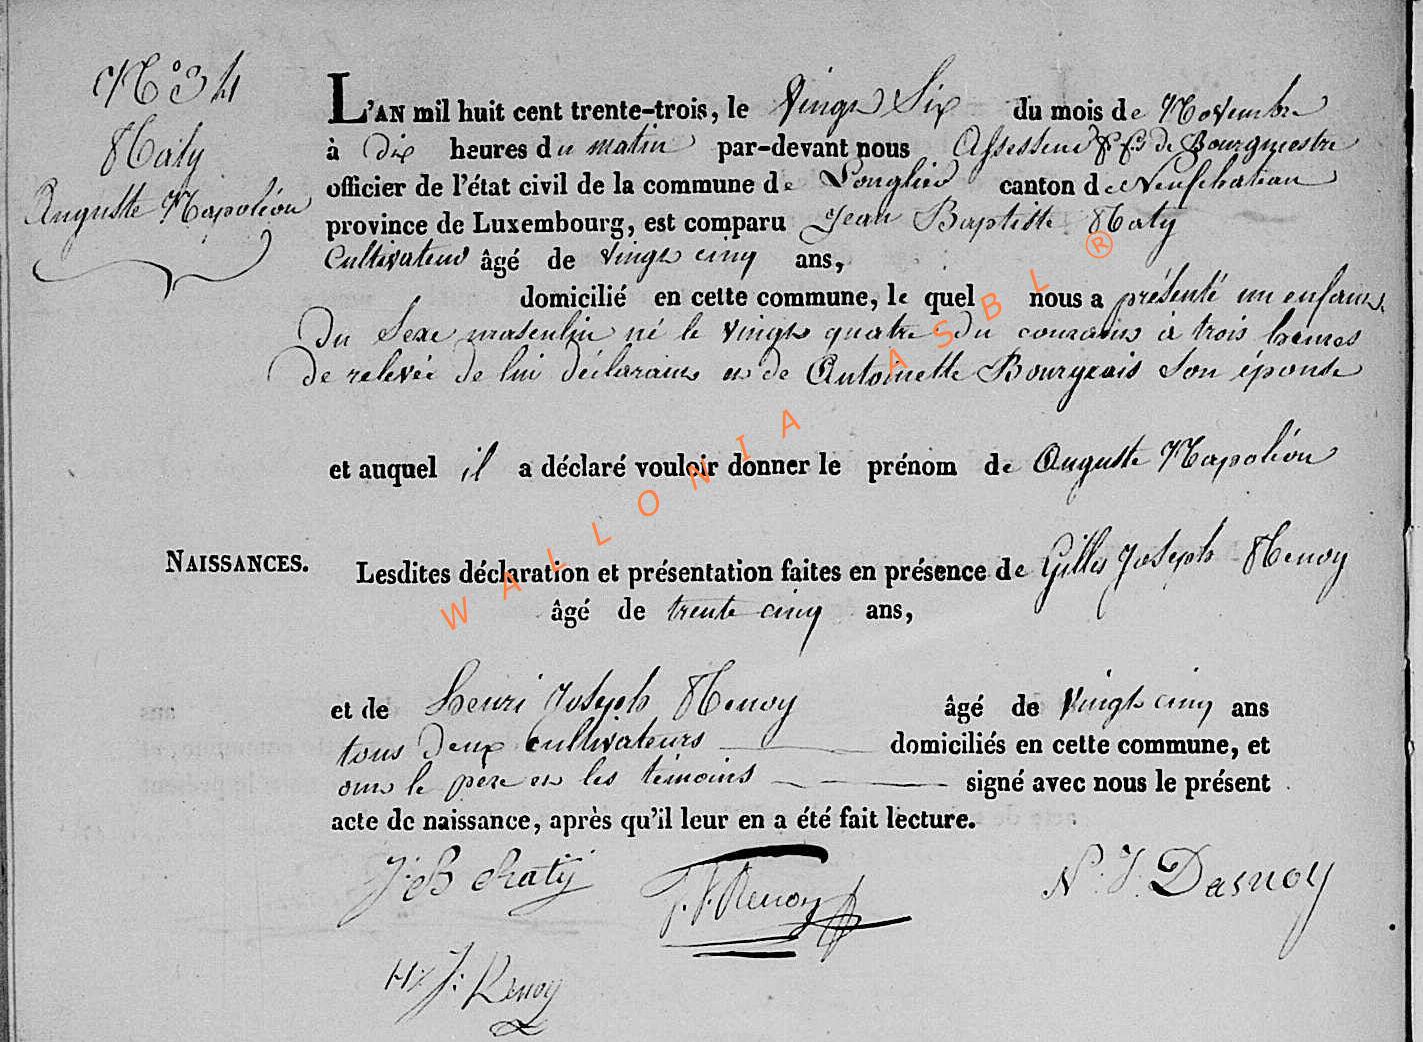 N° 34
Raty
Auguste Napoléon
L'AN mil huit cent trente-trois, le Vingt Six du mois de Novembre
à dix heures du matin par-devant nous Assesseur ff de Bourgmestre
officier de l'état civil de la commune de Longlier canton de Neufchateau
province de Luxembourg, est comparu Jean Baptiste Raty
Cultivateur âgé de vingt cinq ans,
domicilié en cette commune, le quel nous a présenté un enfant
du Sexe masculin né le vingt quatre du courant à trois heures
de relevée de lui déclarant et de Antoinette Bourgeois Son épouse
et auquel il a déclaré vouloir donner le prénom de Auguste Napoléon
NAISSANCES.
Lesdites déclaration et présentation faites en présence de Gilles Joseph Renoy
âgé de trente cinq ans,
et de henri Joseph Renoy âgé de Vingt cinq ans
tous deux cultivateurs domiciliés en cette commune, et
ont le père et les témoins signé avec nous le présent
acte de naissance, après qu'il leur en a été fait lecture.
J: B Raty J. J. Renoy N. J. Dasnoy
H: J: Renoy
WALLONIA ASBL ®